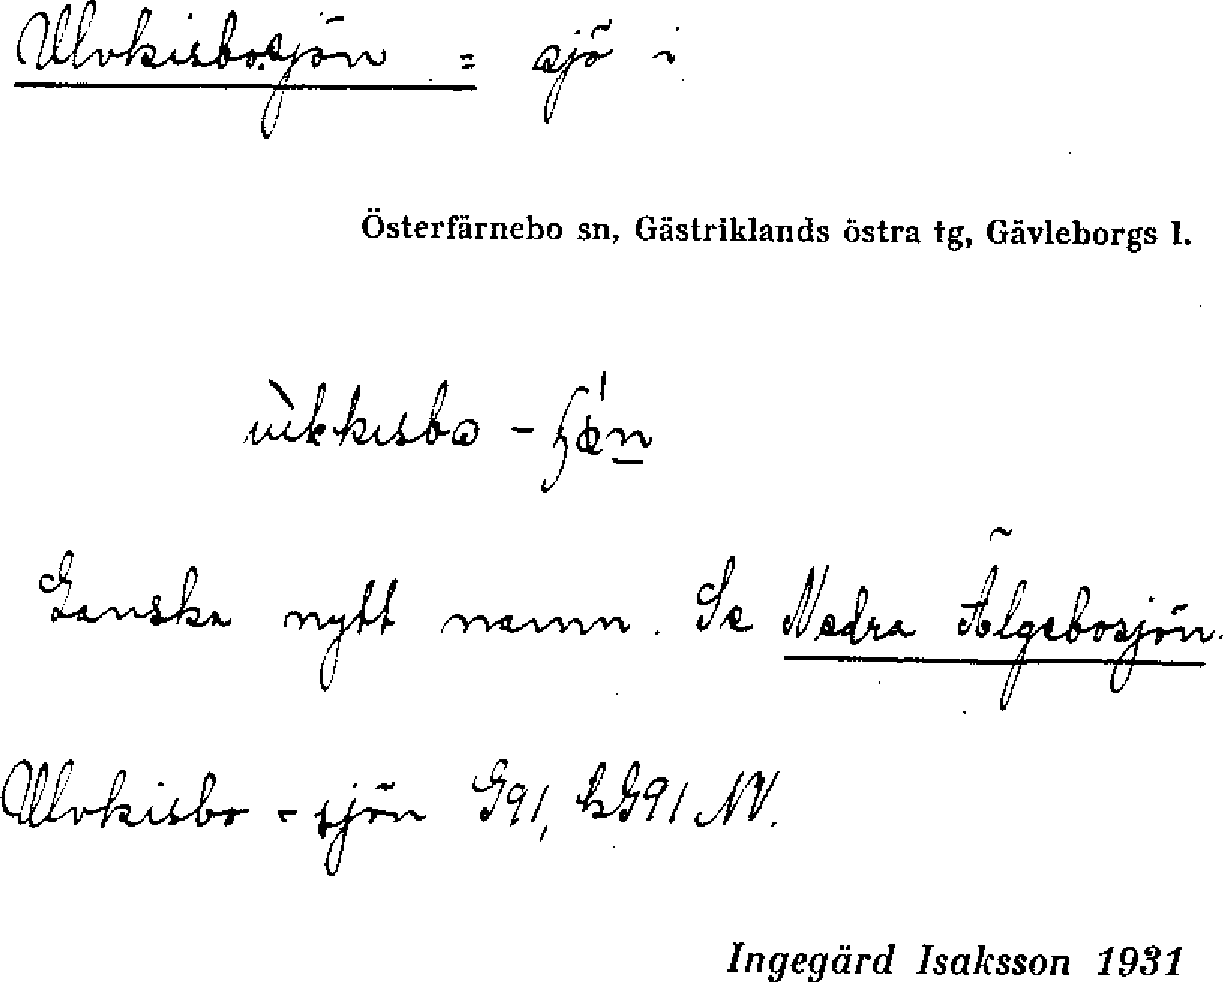 Ulvkisbosjön = sjö i
Österfärnebo sn, Gästriklands östra tg, Gävleborgs l.
Ganska nytt namn. Se Nedra Älgebosjön.
Ulvkisbo - sjön G91, kG91 NV.
Ingegärd Isaksson 1931